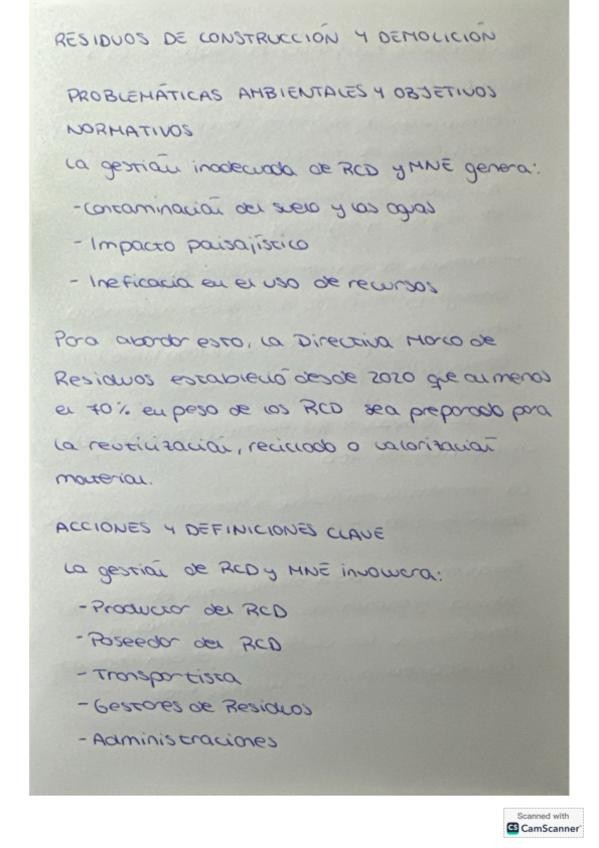 RESIDUOS DE CONSTRUCCIÓN Y DEMOLICIÓN
PROBLEMÁTICAS AMBIENTALES Y OBJETIVOS
NORMATIVOS
La gestión inadecuada de RCD y MNE genera:
- Contaminación del suelo y las aguas
- Impacto paisajístico
- Ineficacia en el uso de recursos
Para abordar esto, la Directiva Marco de
Residuos estableció desde 2020 que al menos
el 70% en peso de los RCD sea preparado para
la reutilización, reciclado o valorización
material.
ACCIONES Y DEFINICIONES CLAVE
La gestión de RCD y MNE involucra:
- Productor del RCD
- Poseedor del RCD
- Transportista
- Gestores de Residuos
- Administraciones
Scanned with
CS CamScanner